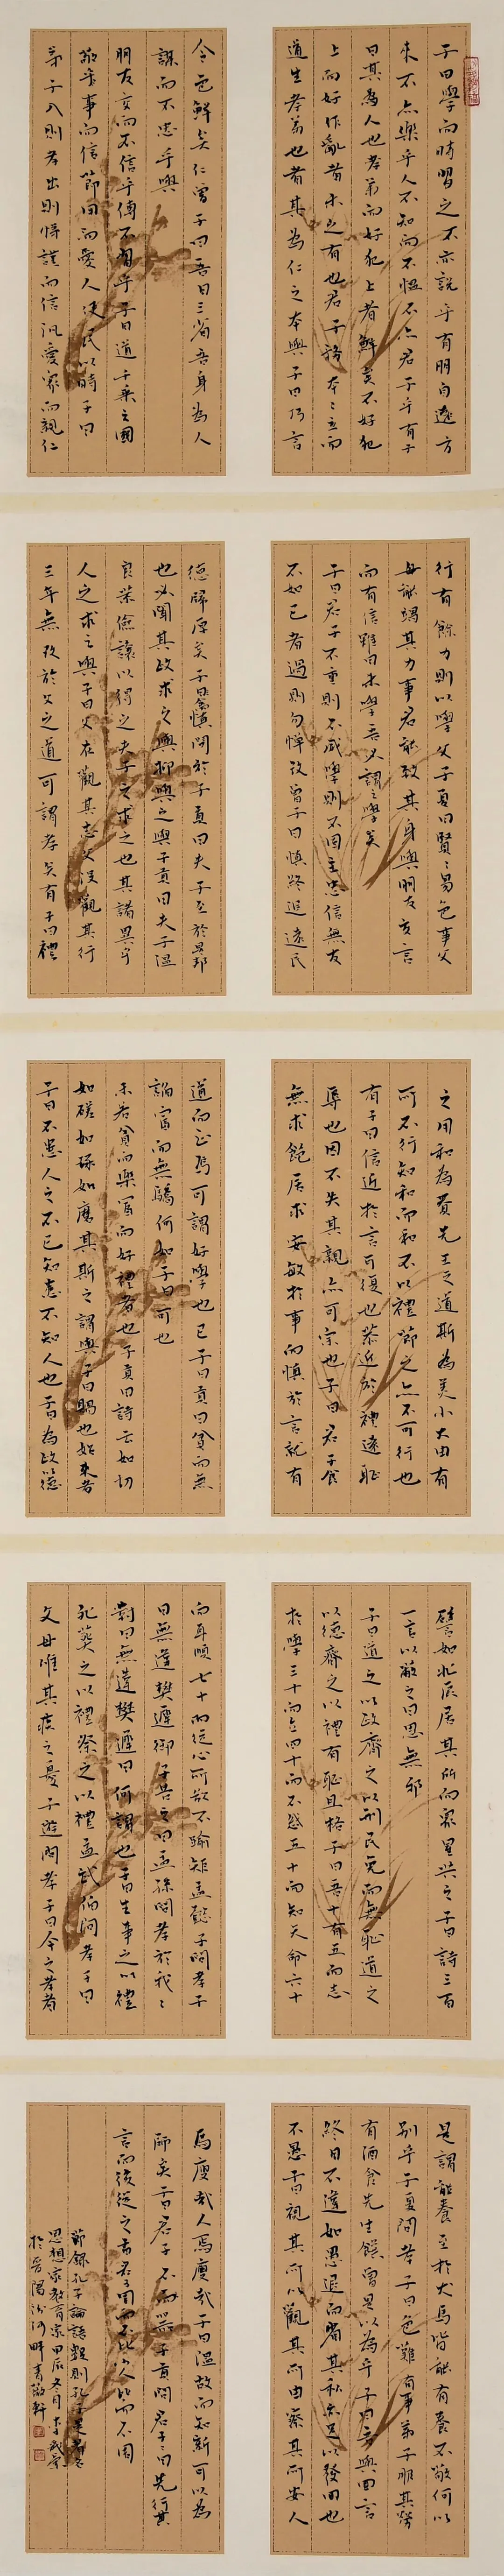 子曰學而時習之不亦說乎有朋自遠方
來不亦樂乎人不知而不慍不亦君子乎有子
曰其為人也孝弟而好犯上者鮮矣不好犯
上而好作亂者未之有也君子務本〻立而
道生孝弟也者其為仁之本與子曰巧言
令色鮮矣仁曾子曰吾日三省吾身為人
謀而不忠乎與
朋友交而不信乎傳不習乎子曰道千乘之國
敬事而信節用而愛人使民以時子曰
弟子入則孝出則悌謹而信汎愛眾而親仁
行有餘力則以學文子夏曰賢〻易色事父
母能竭其力事君能致其身與朋友交言
而有信雖曰未學吾必謂之學矣
子曰君子不重則不威學則不固主忠信無友
不如己者過則勿憚改曾子曰慎終追遠民
德歸厚矣子禽問於子貢曰夫子至於是邦
也必聞其政求之與抑與之與子貢曰夫子溫
良恭儉讓以得之夫子之求之也其諸異乎
人之求之與子曰父在觀其志父沒觀其行
三年無改於父之道可謂孝矣有子曰禮
之用和為貴先王之道斯為美小大由有
所不行知和而和不以禮節之亦不可行也
有子曰信近於言可復也恭近於禮遠恥
辱也因不失其親亦可宗也子曰君子食
無求飽居求安敏於事而慎於言就有
道而正焉可謂好學也已子曰貢曰貧而無
諂富而無驕何如子曰可也
未若貧而樂富而好禮者也子貢曰詩云如切
如磋如琢如磨其斯之謂與子曰賜也始來者
子曰不患人之不己知患不知人也子曰為政以德
譬如北辰居其所而眾星共之子曰詩三百
一言以蔽之曰思無邪
子曰道之以政齊之以刑民免而無恥道之
以德齊之以禮有恥且格子曰吾十有五而志
於學三十而立四十而不惑五十而知天命六十
而耳順七十而從心所欲不踰矩孟懿子問孝子
曰無違樊遲御子告之曰孟孫問孝於我〻
對曰無違樊遲曰何謂也子曰生事之以禮
死葬之以禮祭之以禮孟武伯問孝子曰
父母唯其疾之憂子游問孝子曰今之孝者
是謂能養至於犬馬皆能有養不敬何以
別乎子夏問孝子曰色難有事弟子服其勞
有酒食先生饌曾是以為孝乎子曰吾與回言
終日不違如愚退而省其私亦足以發回也
不愚子曰視其所以觀其所由察其所安人
焉廋哉人焉廋哉子曰溫故而知新可以為
師矣子曰君子不器子貢問君子子曰先行其
言而後從之子曰君子周而不比小人比而不周
節錄孔子論語數則孔子是著名
思想家教育家甲辰冬月
於晉陽汾河畔青敬軒